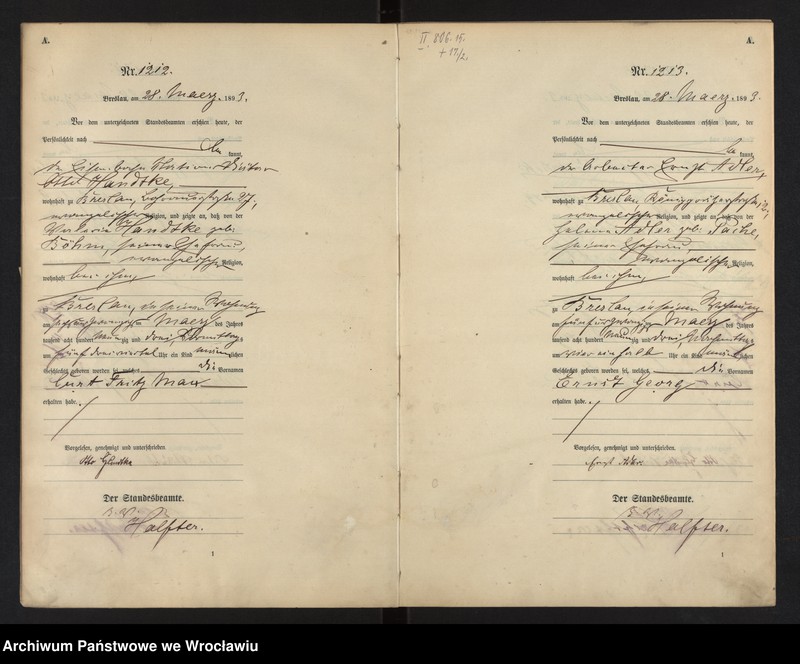 A.
Nr. 1212.
Breslau, am 28. Maerz 1893.
Vor dem unterzeichneten Standesbeamten erschien heute, der
Persönlichkeit nach
kannt,
der Eisenbahn Stations
Otto Handtke,
wohnhaft zu Breslau,
evangelischer Religion, und zeigte an, daß von der
Handtke geb.
Böhm, seiner Ehefrau,
evangelischer Religion,
wohnhaft bei ihm,
zu Breslau, in seiner Wohnung
am Maerz des Jahres
tausend acht hundert neunzig und drei, Vormittags
um fünf dreiviertel Uhr ein Kind männlichen
Geschlechts geboren worden sei, welches die Vornamen
Curt Fritz Max
erhalten habe.
Vorgelesen, genehmigt und unterschrieben
Otto Handtke
Der Standesbeamte.
Halfter.
1
II. 806. 15.
+ 17/2.
A.
Nr. 1213.
Breslau, am 28. Maerz 1893.
Vor dem unterzeichneten Standesbeamten erschien heute, der
Persönlichkeit nach
kannt,
der Arbeiter Ernst Adler,
wohnhaft zu Breslau,
evangelischer Religion, und zeigte an, daß von der
Helene Adler geb.
seiner Ehefrau,
evangelischer Religion,
wohnhaft bei ihm,
zu Breslau, in seiner Wohnung
am fünfundzwanzigsten Maerz des Jahres
tausend acht hundert neunzig und drei,
um Uhr ein Kind männlichen
Geschlechts geboren worden sei, welches die Vornamen
Ernst Georg
erhalten habe.
Vorgelesen, genehmigt und unterschrieben
Ernst Adler
Der Standesbeamte.
Halfter.
1
Archiwum Państwowe we Wrocławiu